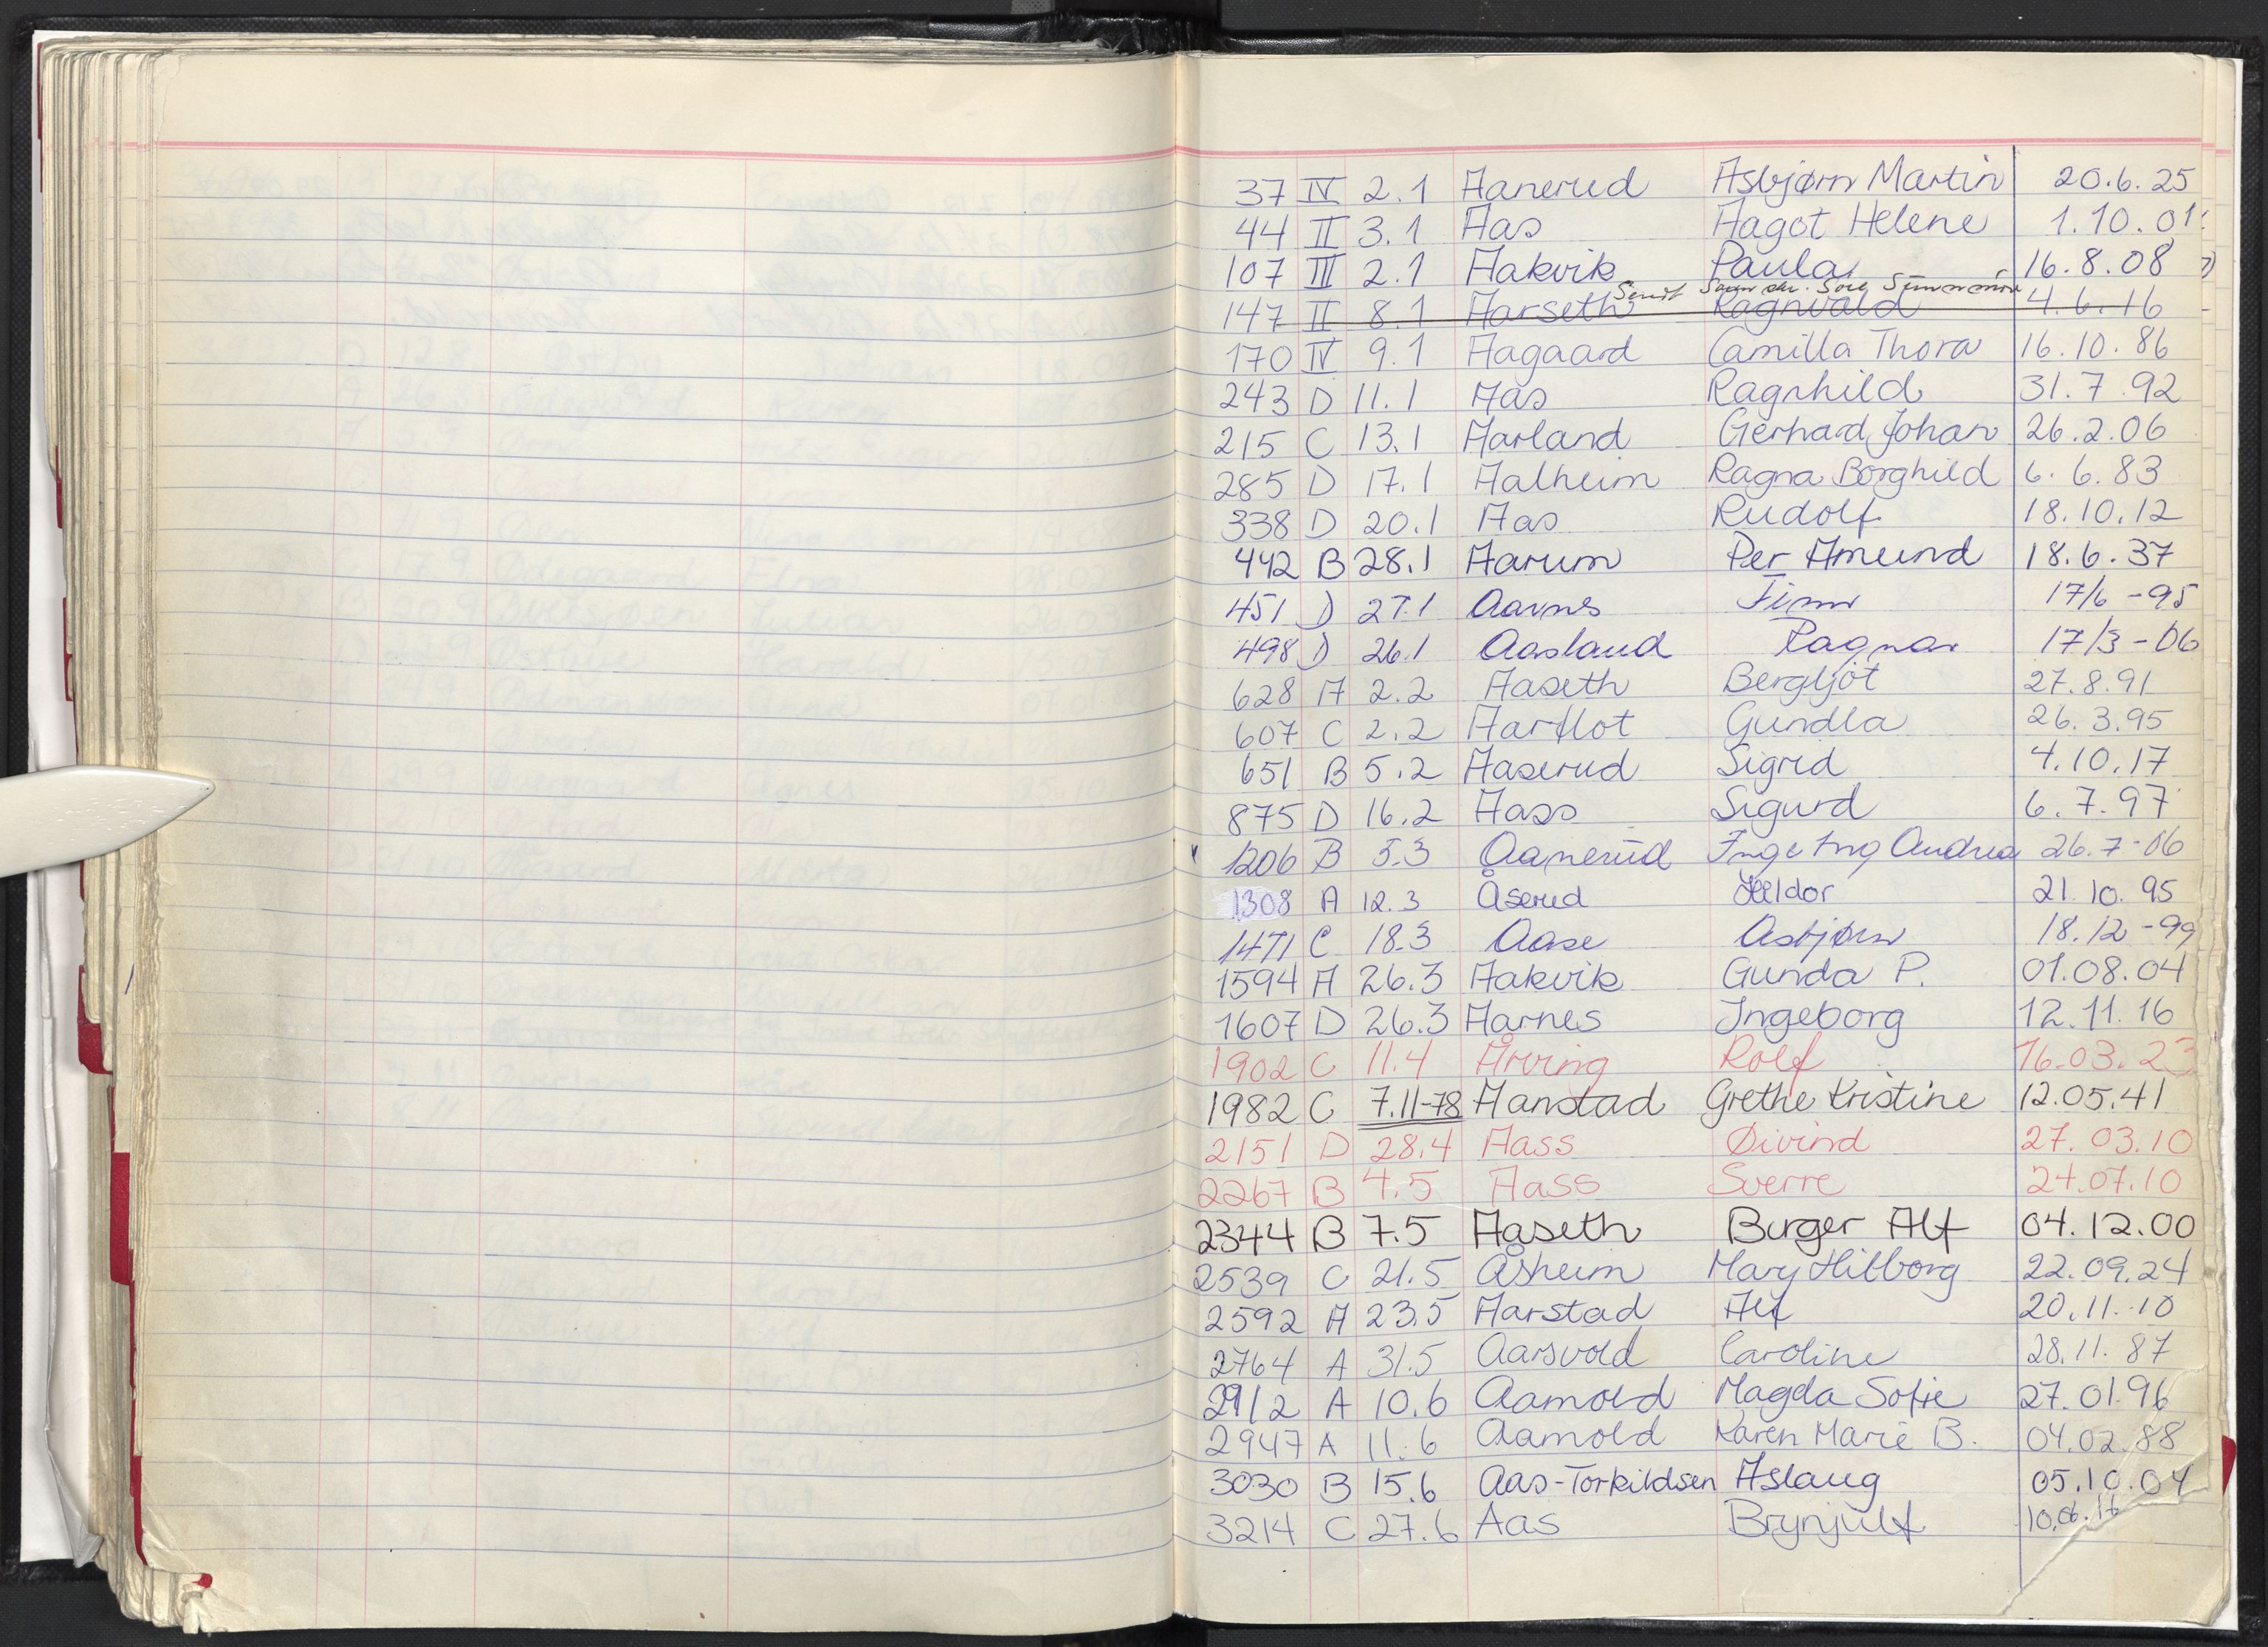 37 IV 2.1 Aanerud Asbjørn Martin 20.6.25
44 II 3.1 Aas Aagot Helene 1.10.01
107 III 2.1 Aakvik Paula 16.8.08
Sendt
147 II 8.1 Aarseth Ragnvald 4.6.16
170 IV 9.1 Aagaard Camilla Thora 16.10.86
243 D 11.1 Aas Ragnhild 31.7.92
215 C 13.1 Aarland Gerhard Johan 26.2.06
285 D 17.1 Aalheim Ragna Borghild 6.6.83
338 D 20.1 Aas Rudolf 18.10.12
442 B 28.1 Aarum Per Amund 18.6.37
451 D 27.1 Aavnes Finn 17/6-95
498 D 26.1 Aasland Ragnar 17/3-06
628 A 2.2 Aaseth Bergljot 27.8.91
607 C 2.2 Aarflot Gundla 26.3.95
651 B 5.2 Aaserud Sigrid 4.10.17
875 D 16.2 Aass Sigurd 6.7.97
1206 B 5.3 Aanerud Andrea 26.7-06
1308 A 12.3 Åserud Haldor 21.10.95
1471 C 18.3 Aase Asbjørn 18.12-99
1594 A 26.3 Aakvik Gunda P. 01.08.04
1607 D 26.3 Aarnes Ingeborg 12.11.16
1902 C 11.4 Årving Rolf 16.03.23
1982 C 7.11-78 Aanstad Grethe Kristine 12.05.41
2151 D 28.4 Aass Øivind 27.03.10
2267 B 4.5 Aass Sverre 24.07.10
2344 B 7.5 Aaseth Birger Alf 04.12.00
2539 C 21.5 Åsheim Mary Hilborg 22.09.24
2592 A 23.5 Aarstad Alf 20.11.10
2764 A 31.5 Aarsvold Caroline 28.11.87
2912 A 10.6 Aamold Magda Sofie 27.01.96
2947 A 11.6 Aamold Karen Marie B. 04.02.88
3030 B 15.6 Aas-Torkildsen Aslaug 05.10.04
3214 C 27.6 Aas Brynjulf 10.06.16